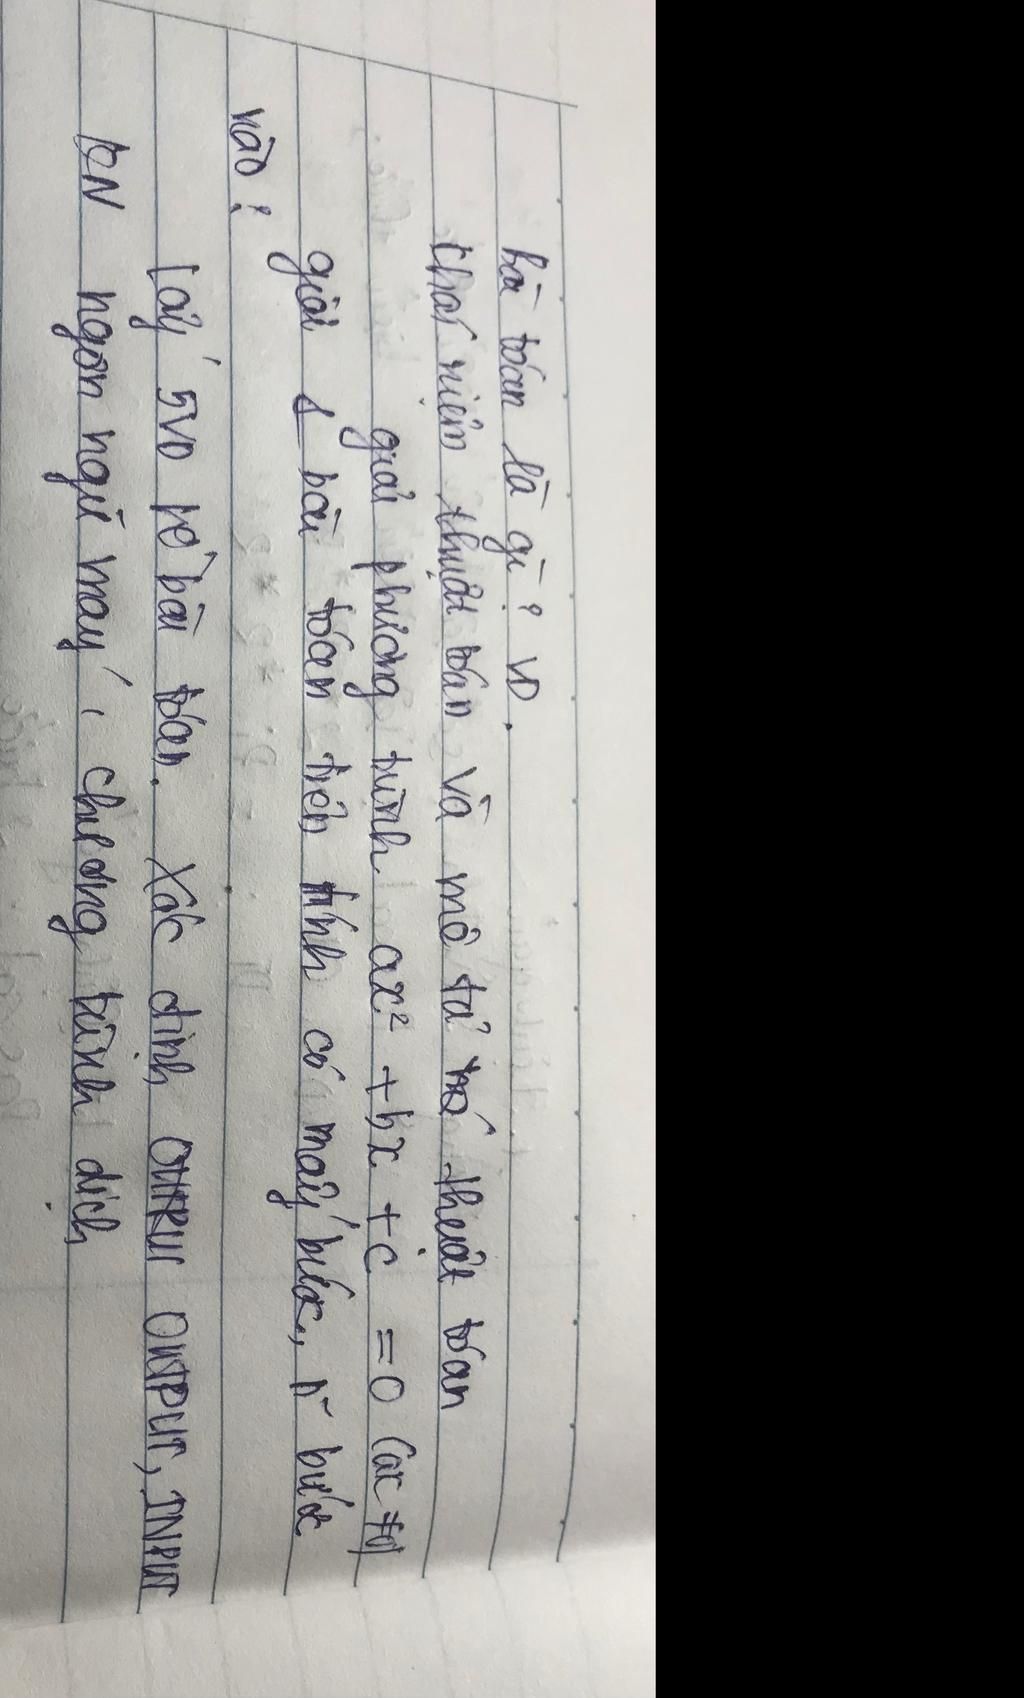 bài toán là gì? VD.
khái niệm thuật toán và mô tả thuật toán
giải phương trình ax² + bx + c = 0 (a ≠ 0)
giải 1 bài toán trên tính có mấy bước, là bước
nào?
Lấy 5VD về bài toán. Xác định OUTPUT, INPUT
KN ngôn ngữ máy, chương trình dịch